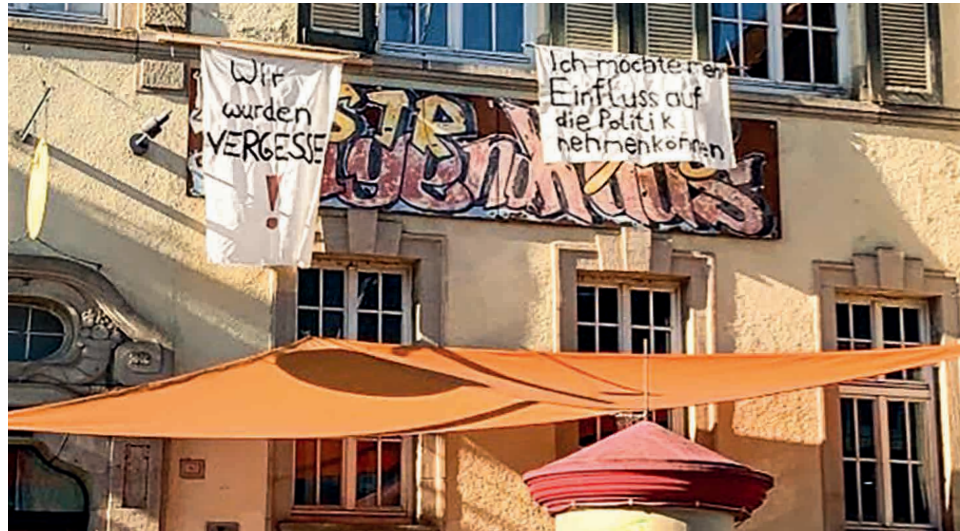 Wir
wurden
VERGESSE
!
Ich möchte
Einfluss auf
die Politik
nehmen können
ugendhaus